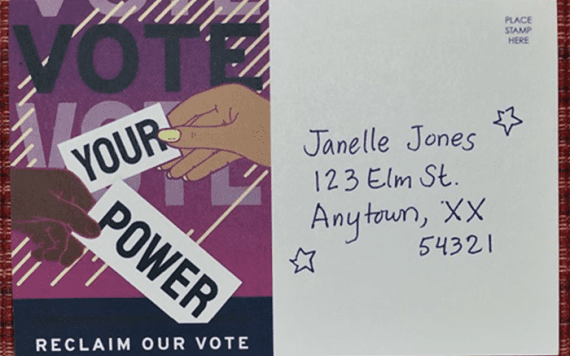 VOTE
VOTE
VOTE
VOTE
YOUR
POWER
RECLAIM OUR VOTE
PLACE
STAMP
HERE
Janelle Jones
123 Elm St.
Anytown, XX
54321